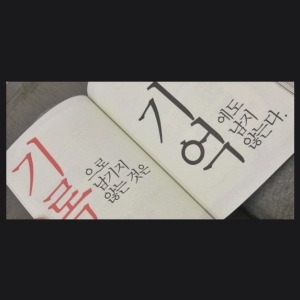 기록
으로
남기지
않는 것은
기억
에도
남지
않는다.